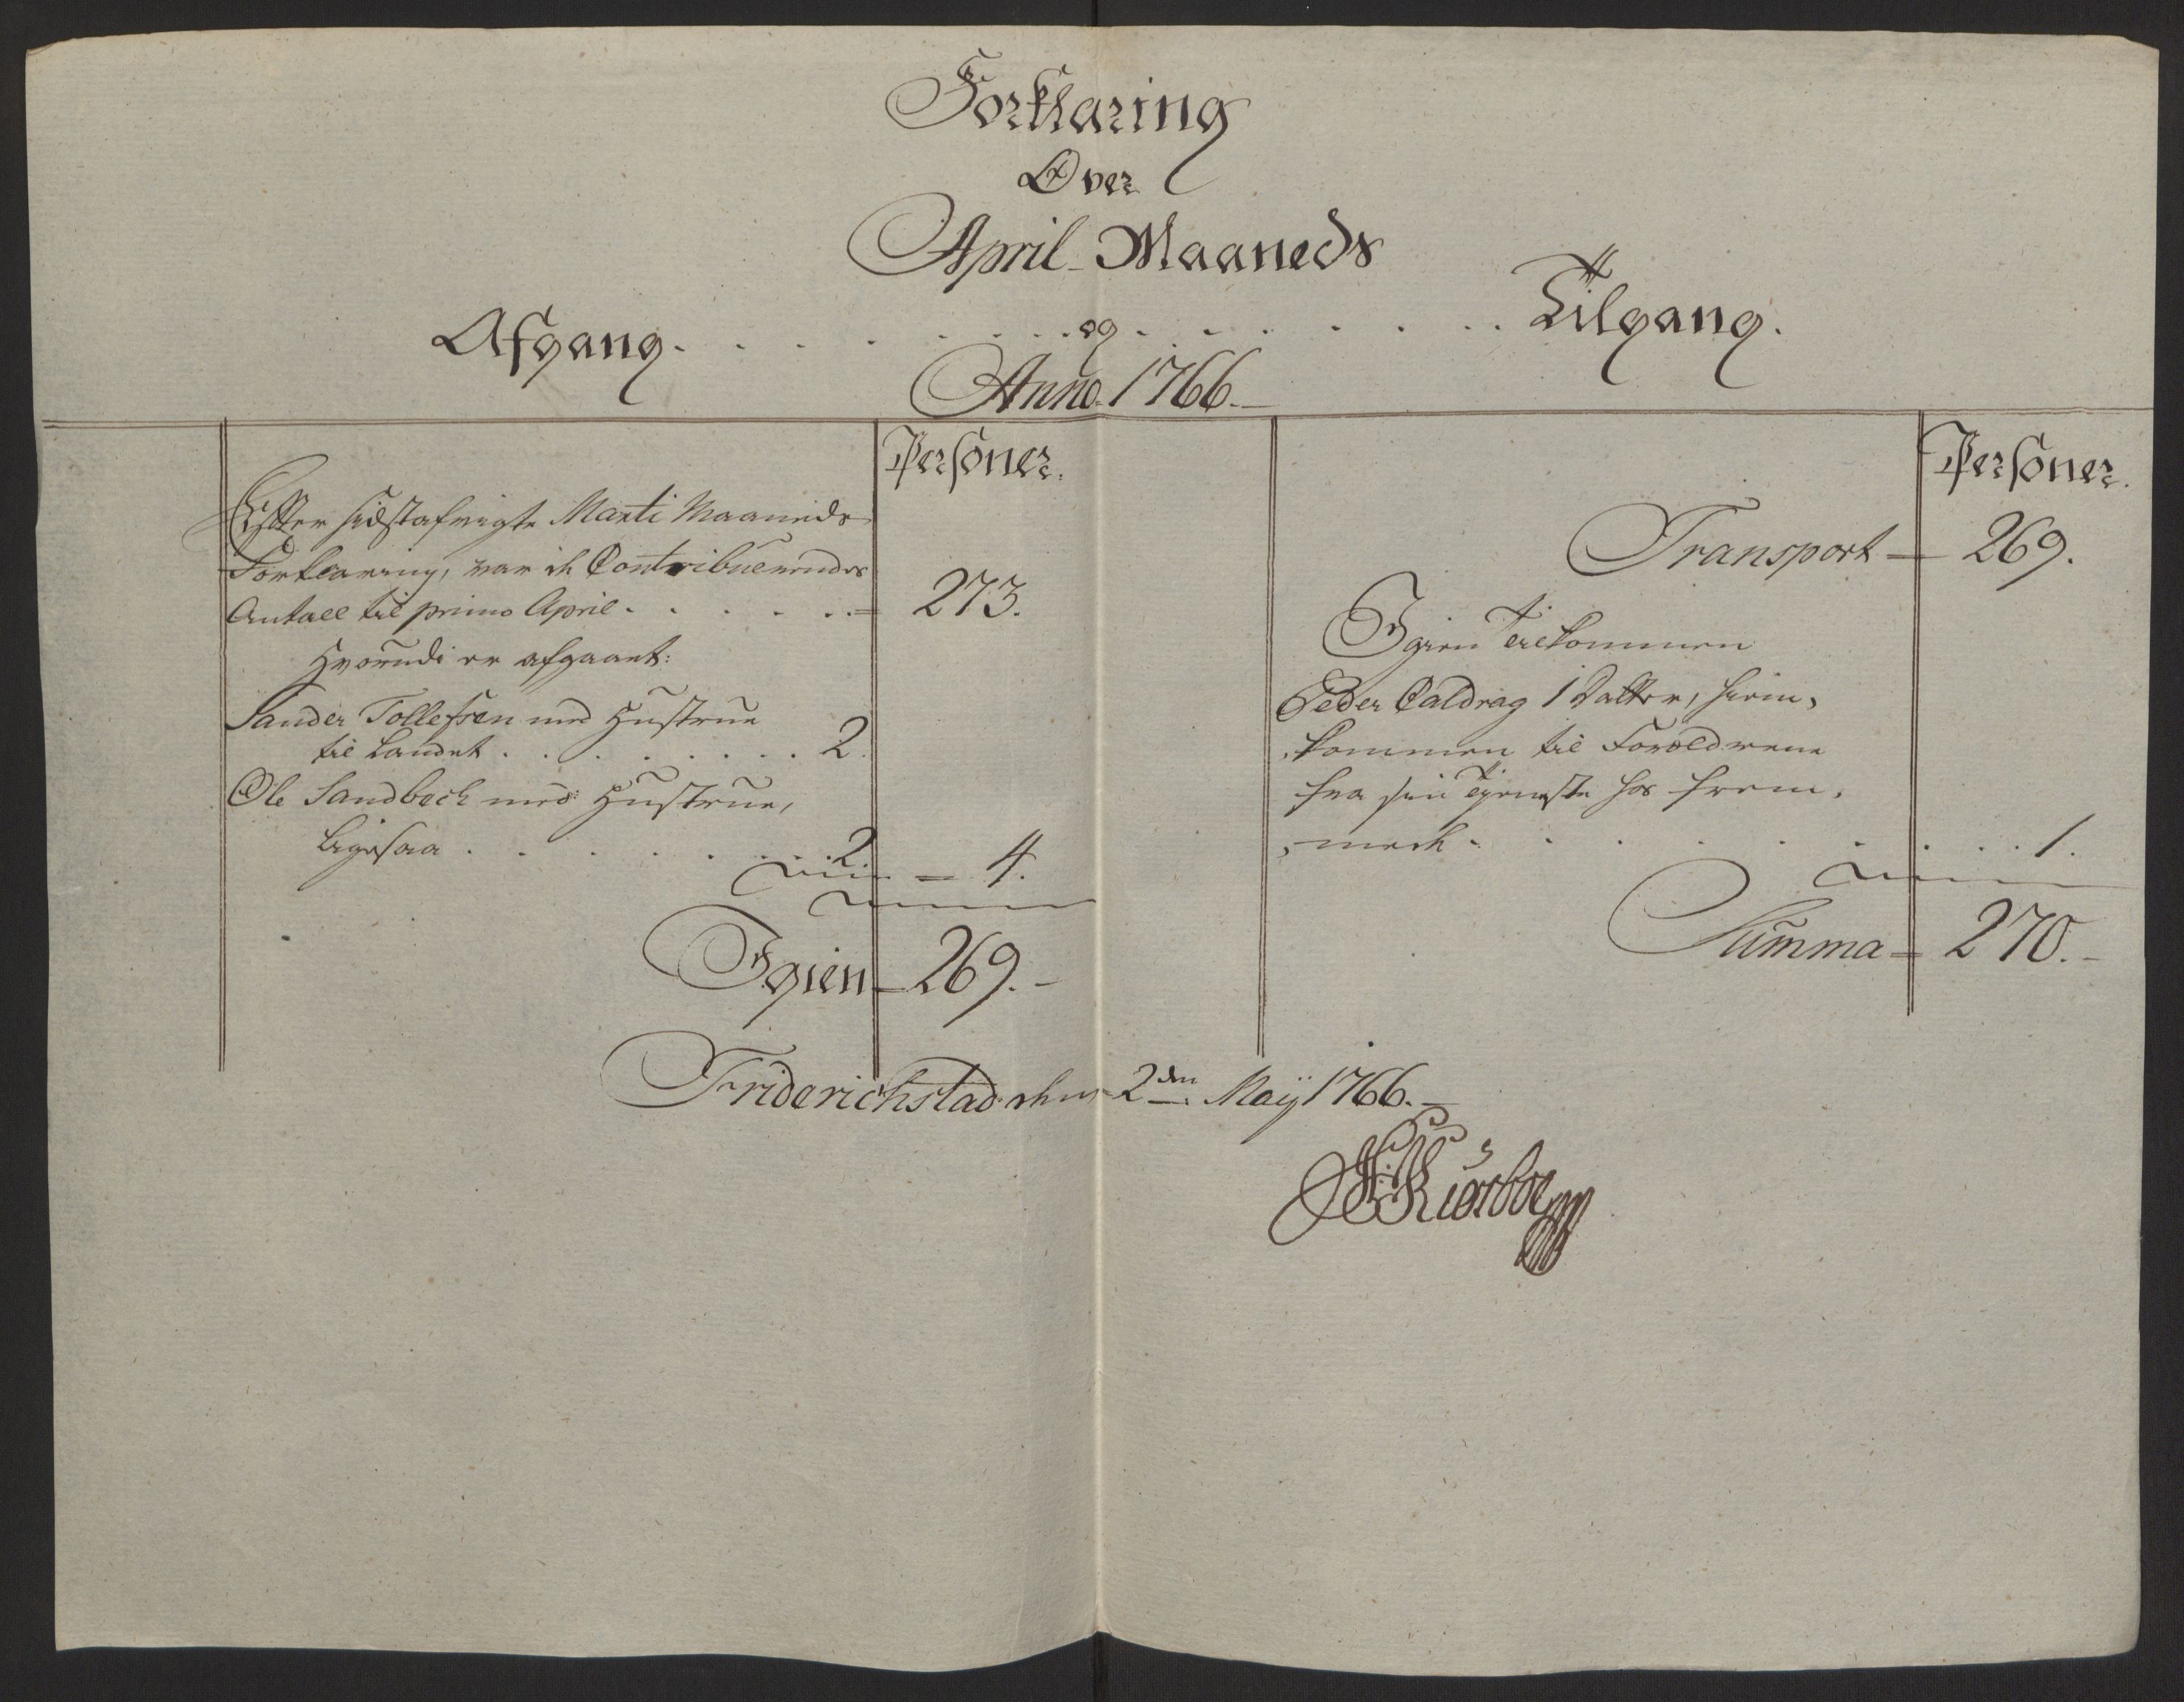 Forklaring
Over
April Maaneds
Afgang . . . . . . . . og . . . . . . . Tilgang.
Anno 1766.
Personer.
Efter sidstafvigte Marti Maaneds
Forklaring, var de Contribuerendes
Antall til primo April . . . . . . 273.
Hvorudi er afgaaet:
Sander Tollefsen med Hustrue
til Landet . . . . . . . . 2.
Ole Sandbech med Hustrue,
ligesaa . . . . . . . . 2.
4.
Igien 269.
Personer.
Transport 269.
Igien Tilkommen
Peder Caldrag 1 Datter, hiem,
,kommen til Forældrene
fra sin Tjeneste hos frem,
,mede . . . . . . . . 1.
Summa 270.
Friderichstad den 2den Maij 1766.